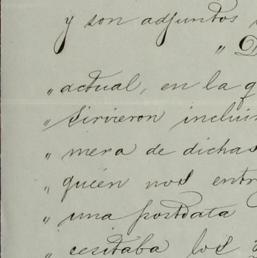 y son adjuntos
" D
" actual, en la q
" sirvieron inclui
" mera de dichas
" quien nos entr
" una postdata
" cesitaba los